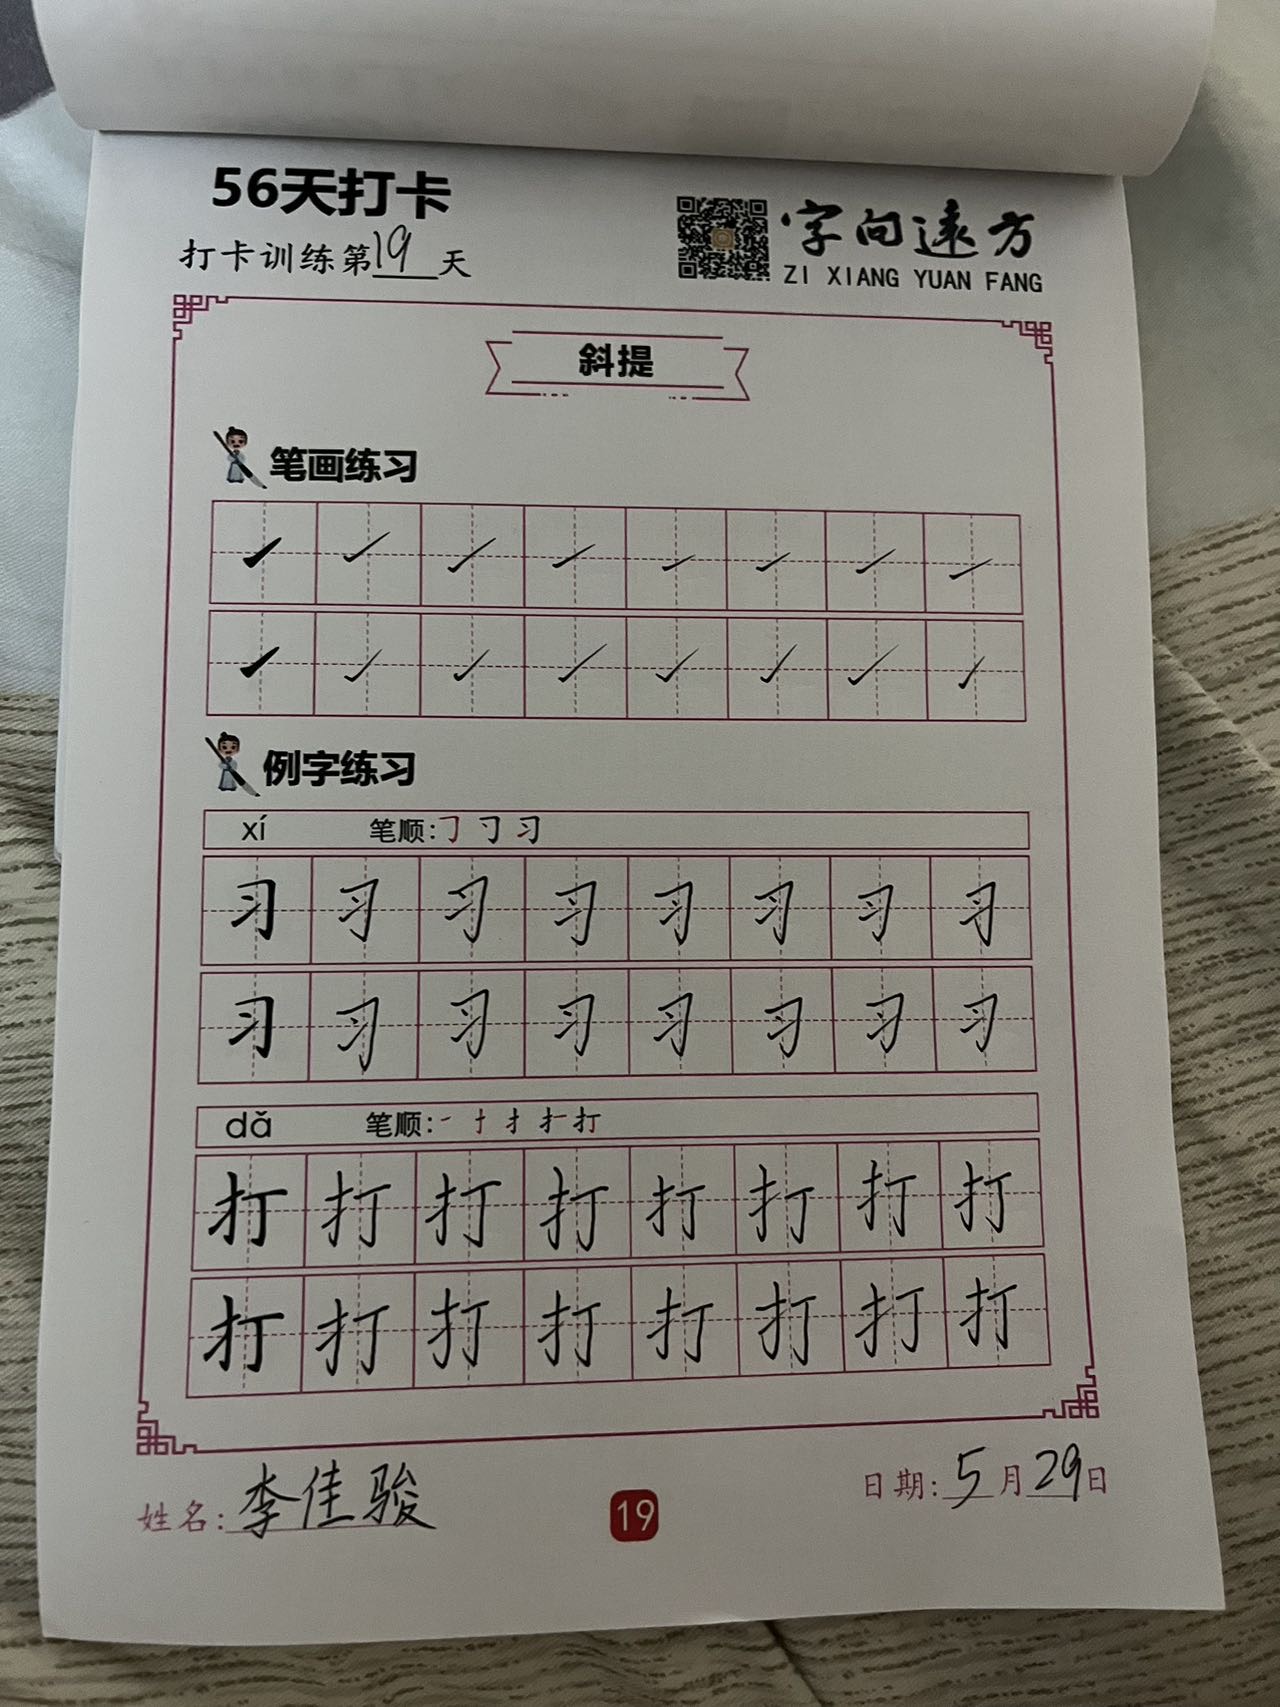 56天打卡
打卡训练第19天
字向远方
ZI XIANG YUAN FANG
斜提
笔画练习
例字练习
xí 笔顺:㇆ 习
习 习 习 习 习 习 习 习
习 习 习 习 习 习 习 习
dǎ 笔顺:一 扌 打
打 打 打 打 打 打 打 打
打 打 打 打 打 打 打 打
姓名:李佳骏
19
日期:5月29日